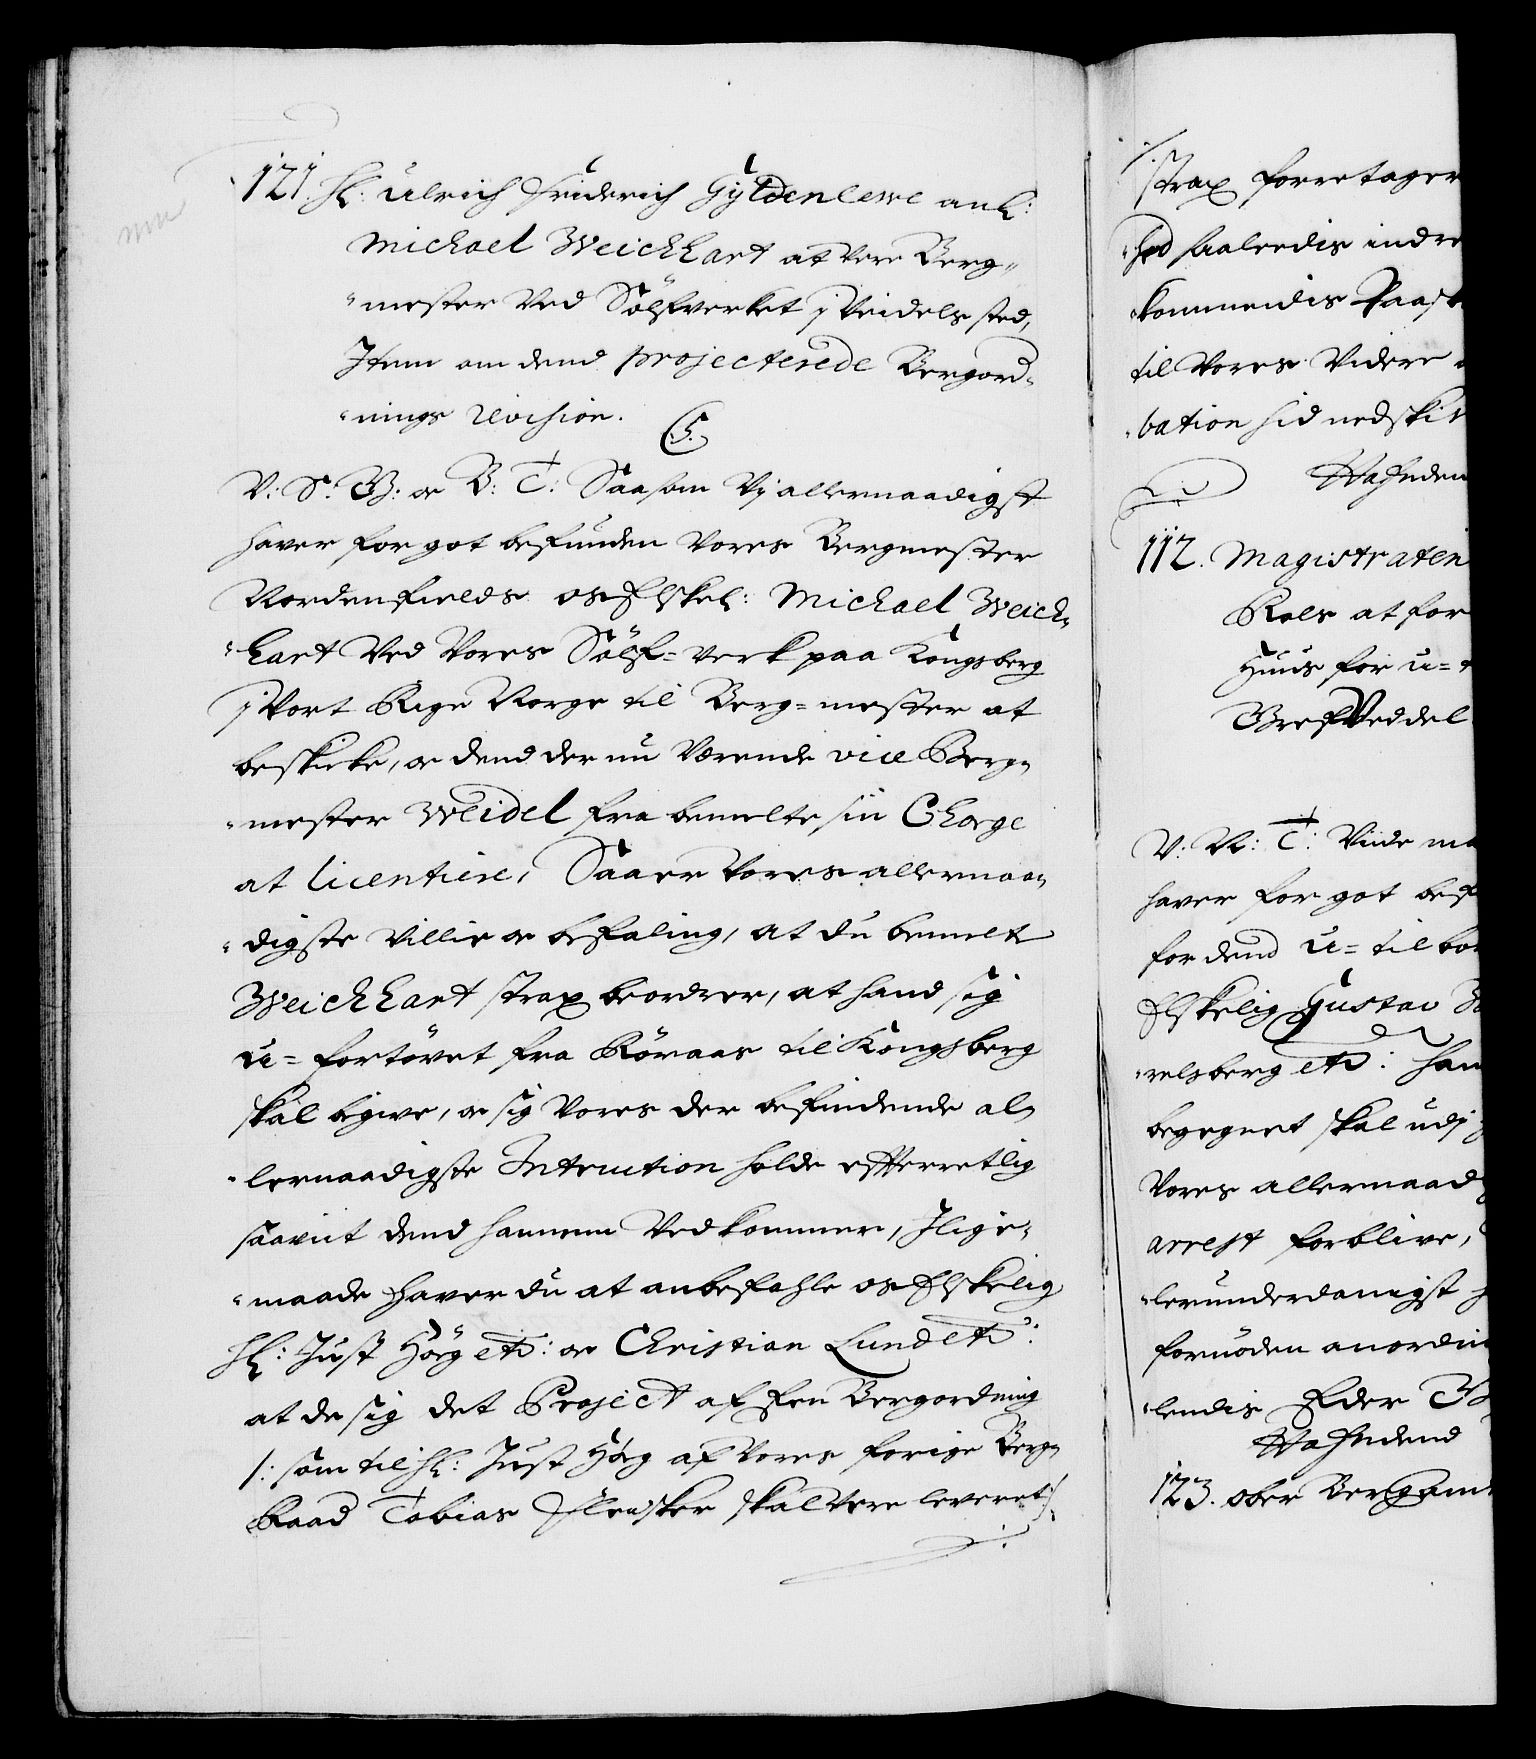 121. Hl: Ulrich Friderich Gyldenlewe anl:
Michael Weichhart at vere Berg-
mester ved Sölfverket i Weidels sted,
Item om dend projecterede Bergord-
nings Revision.
C5.
V: S: G: oc B: T: Saasom Vj allernaadigst
haver for got befunden Vores Bergmester
Nordenfields os Elskel: Michael Weich-
hart ved Vores Sölf-verk paa Kongsberg
j Vort Rige Norge til Berg-mester at
beskicke, oc dend der nu Værende vice Berg-
mester Weidel fra bemelte sin Charge
at licentiere, Saa er Vores allernaa-
digste Villie oc befaling, at du bemelte
Weichhart strax beordrer, at hand sig
u-fortövet fra Röraas til Kongsberg
skal begive, oc sig Vores der befindende al-
lernaadigste Intruction holde efterretlig
saavit dend hannem vedkommer, Ilige-
maade haver du at anbefahle os Elskelig
Hl: Just Hög etc: oc Christian Lund etc:
at de sig det Project af Een Bergordning
/: som til Hl: Just Hög af Vores forige Berg-
Raad Tobias Fleisker skal vere leveret :/
/: strax foretager
hed saaledis indre
kommendis Paast
til Vores Videre
bation hid nedskik
Hafnden
112. Magistraten
Rols at for
Huus for u-
Gref Weddel
V: W: T: Viide ma
haver for got bef
for dend u-til bör
Elskelig Gustav W
relsberg etc: han
begegnet skal udj
Vores allernaad
arrest forblive,
lerunderdanigst
fornöden anordin
lendis Eder G
Hafndend
123. ober Bergamt